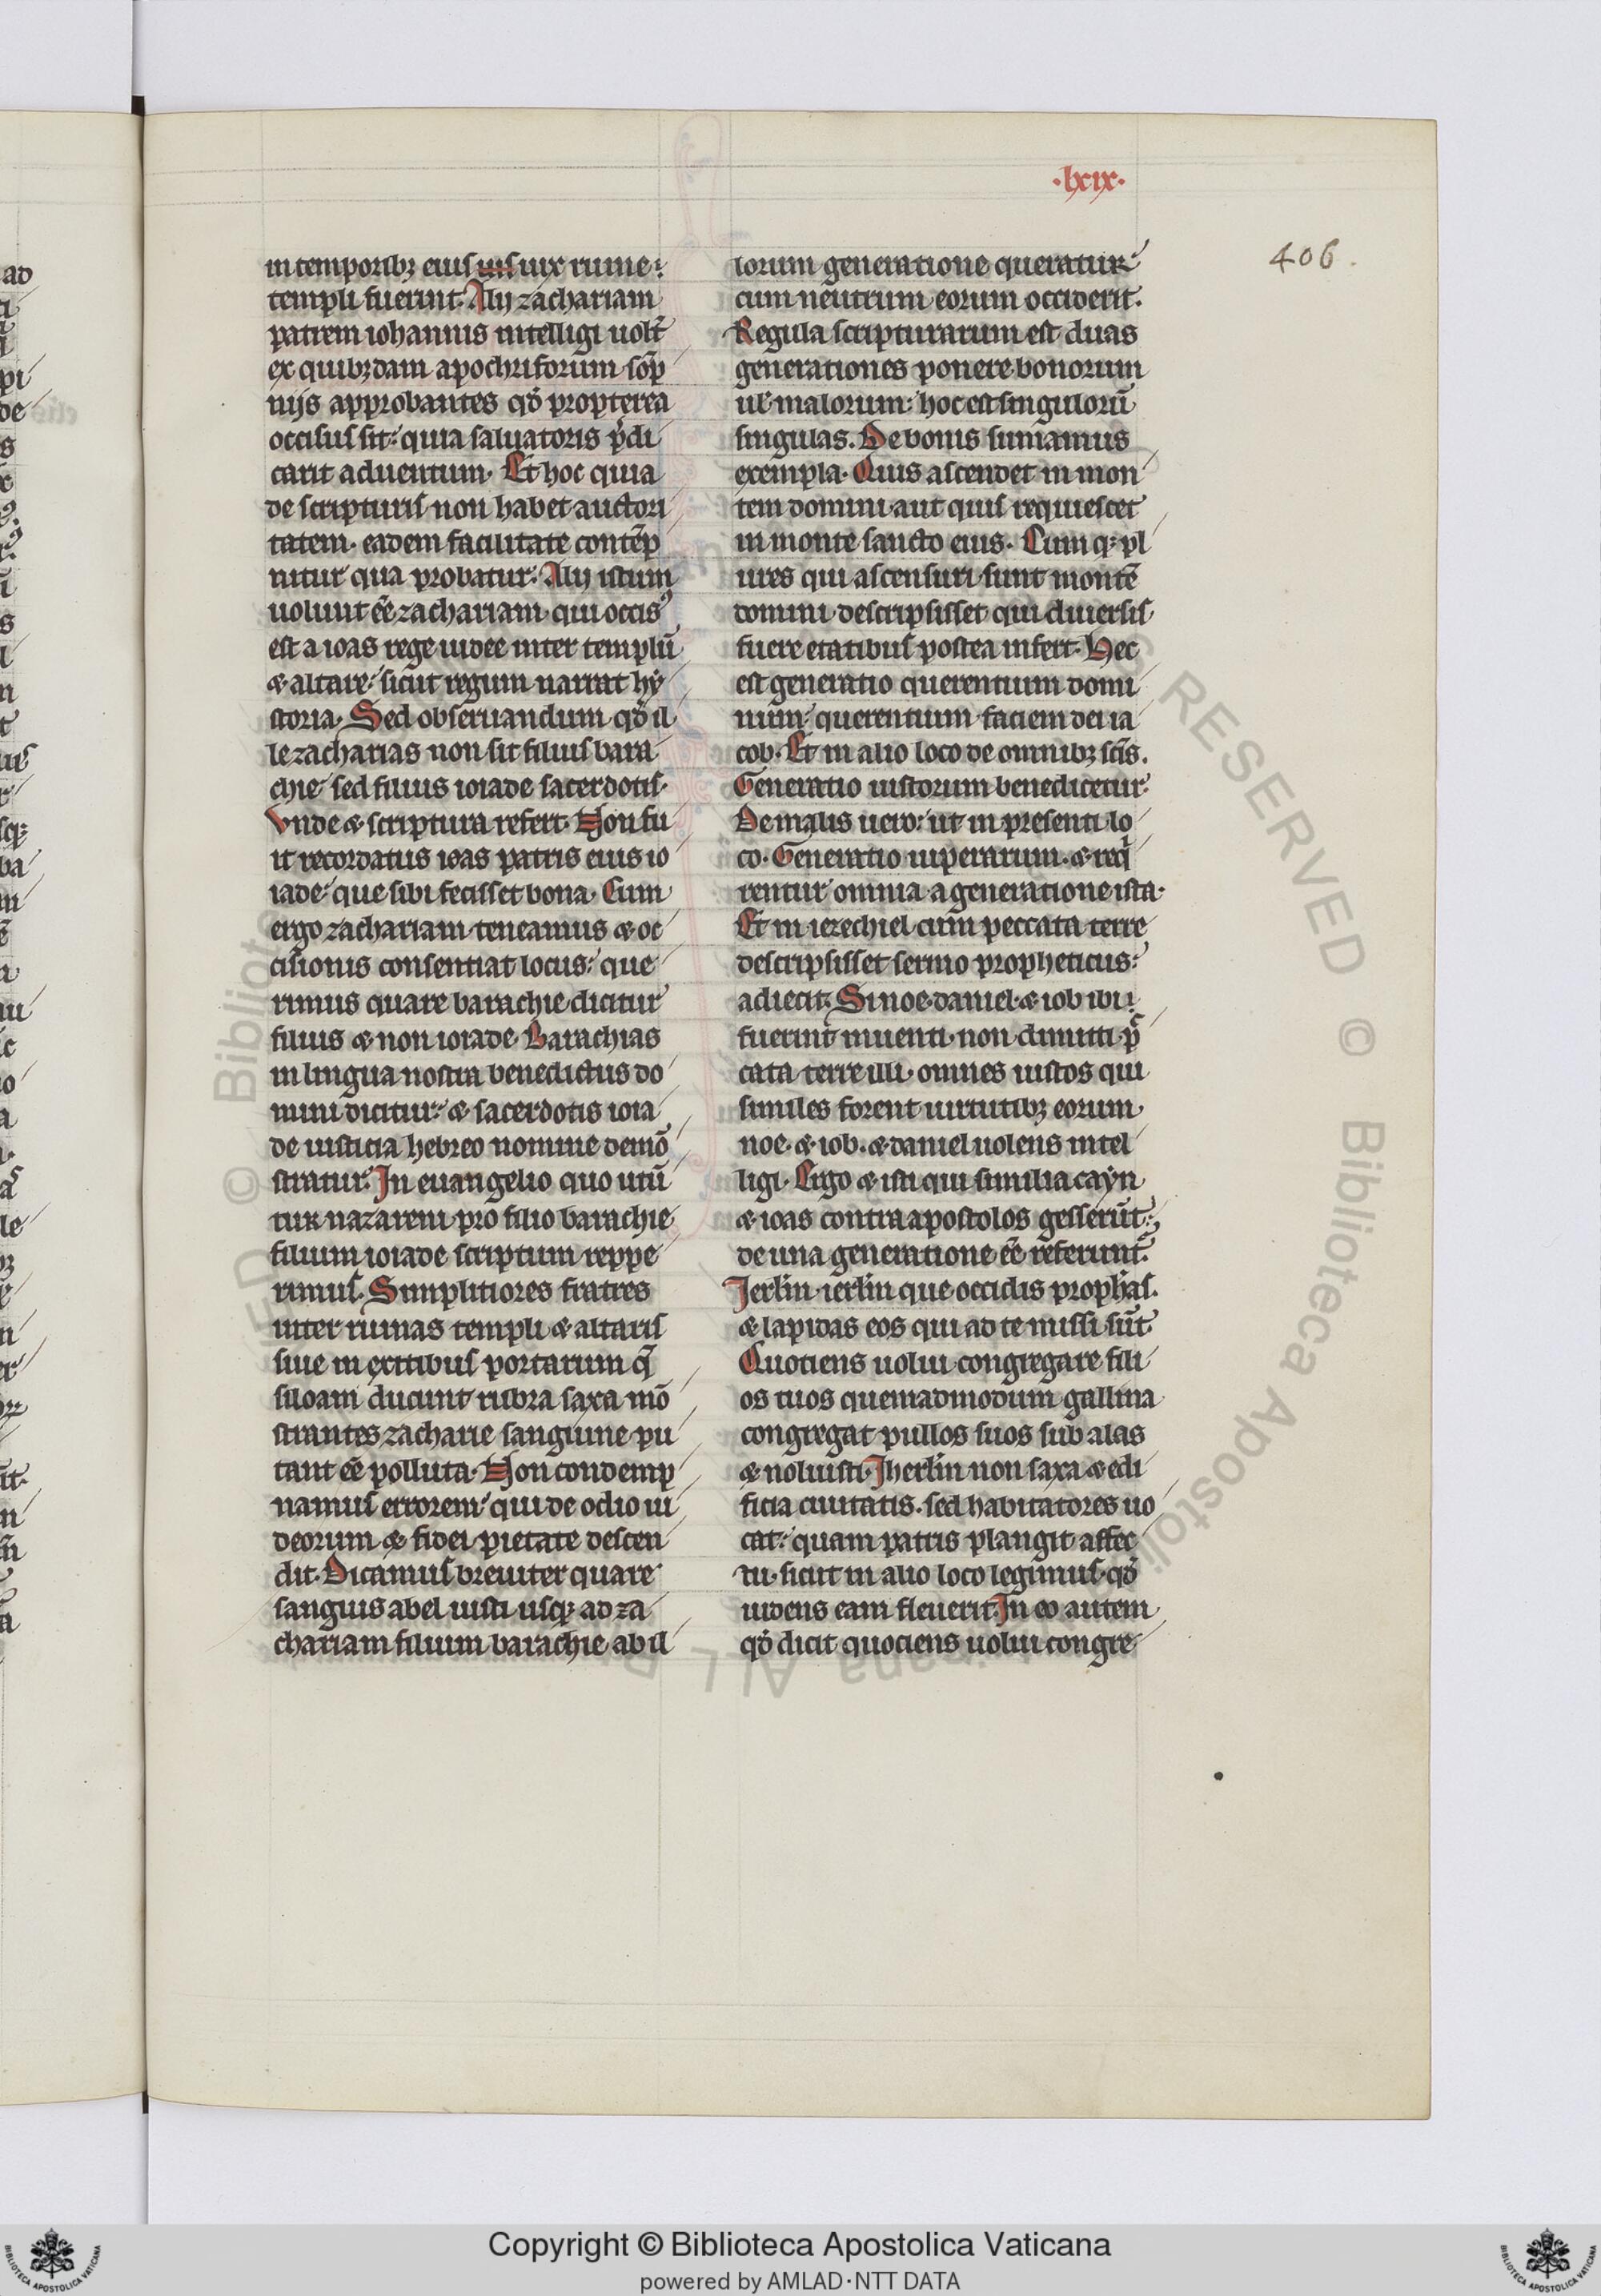 ·lxix·
406.
in temporibꝫ eius uis uix ruine
templi fuerint. Alij zachariam
patrem iohannis intelligi uolt̄
ex quibꝫdam apochriforum sōp
nijs approbantes qđ propterea
occisus sit: quia saluatoris p̄di
carit aduentum. Et hoc quia
de scripturis non habet auctori
tatem. eadem facilitate contēp
nitur qua probatur. Alij istum
uolunt eē zachariam. qui occisꝰ
est a ioas rege iudee inter templū
& altare: sicut regum narrat hy
storia. Sed obseruandum qđ il
le zacharias non sit filius bara
chie sed filius ioiade sacerdotis.
Vnde & scriptura refert. Non fu
it recordatus ioas patris eius io
iade: que sibi fecisset bona. Cum
ergo zachariam teneamus & oc
cisionis consentiat locus: que
rimus quare barachie dicitur
filius & non ioiade. Barachias
in lingua nostra benedictus do
mini dicitur: & sacerdotis ioia
de iusticia hebreo nomine demō
stratur. In euangelio quo utū
tur nazareni pro filio barachie
filium ioiade scriptum reppe
rimus. Simplitiores fratres
inter ruinas templi & altaris
siue in exitibus portarum q̄
siloam ducunt rubra saxa mō
strantes zacharie sanguine pu
tant eē polluta. Non condemp
namus errorem: qui de odio iu
deorum & fidei pietate descen
dit. Dicamus breuiter quare
sanguis abel iusti usqꝫ ad za
chariam filium barachie ab il
lorum generatione queratur
cum neutrum eorum occiderit.
Regula scripturarum est duas
generationes ponere bonorum
ul̄ malorum: hoc est singulorū
singulas. De bonis sumamus
exempla. Quis ascendet in mon
tem domini aut quis requiescet
in monte sancto eius. Cumqꝫ pl
ures qui ascensuri sunt montē
domini descripsisset qui diuersis
fuere etatibus postea infert. Hec
est generatio querentium domi
num: querentium faciem dei ia
cob. Et in alio loco de omnibꝫ sc̄is.
Generatio iustorum benedicetur.
De malis uero: ut in presenti lo
co. Generatio uiperarum. & req̄
rentur omnia a generatione ista.
Et in iezechiel cum peccata terre
descripsisset sermo propheticus:
adiecit. Si noe. daniel. & iob ibi
fuerint inuenti. non dimitti pͨ
cata terre illi. omnes iustos qui
similes forent uirtutibꝫ eorum
noe. & iob. & daniel uolens intel
ligi. Ergo & isti qui similia cayn
& ioas contra apostolos gesserūt
de una generatione eē referunt.
Ierl̄m ierl̄m que occidis proph̄as.
& lapidas eos qui ad te missi sūt
Quotiens uolui congregare fili
os tuos quemadmodum gallina
congregat pullos suos sub alas
& noluisti. Iherl̄m non saxa & edi
ficia ciuitatis. sed habitatores uo
cat: quam patris plangit affec
tu. sicut in alio loco legimus. qđ
uidens eam fleuerit. In eo autem
qđ dicit quociens uolui congre
Copyright © Biblioteca Apostolica Vaticana
powered by AMLAD·NTT DATA